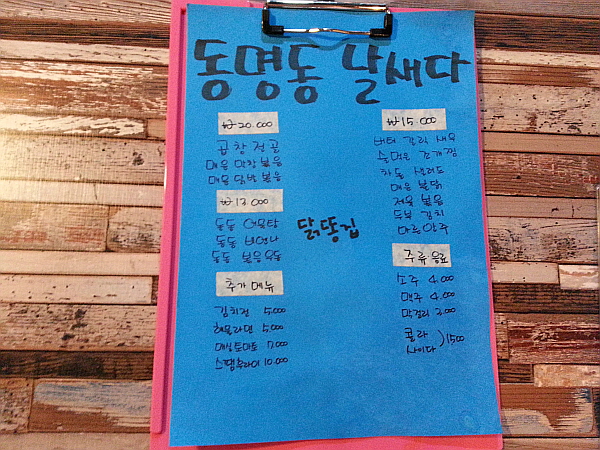 동명동 날새다
₩20.000
곱창전골
매운 막창 볶음
매운 닭발 볶음
₩13.000
동동 어묵탕
동동 비엔나
동동 볶음우동
추가 메뉴
김치전 5.000
해물라면 5.000
매실토마토 7.000
스팸후라이 10.000
닭똥집
₩15.000
버터 갈릭 새우
술먹은 조개찜
하동 샐러드
매운 불닭
제육 볶음
두부 김치
마른안주
주류 음료
소주 4.000
맥주 4.000
막걸리 3.000
콜라
사이다 ) 1500